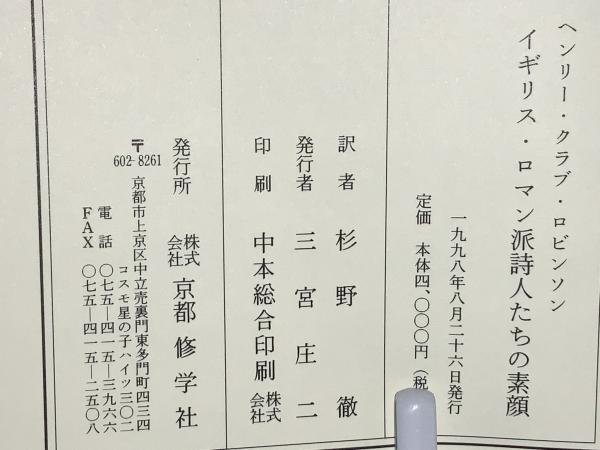 ヘンリー・クラブ・ロビンソン
イギリス・ロマン派詩人たちの素顔
一九九八年八月二十六日発行
定価 本体四、〇〇〇円（税
訳者 杉野徹
発行者 三宮庄二
印刷 中本総合印刷株式会社
発行所 株式会社京都修学社
〒602-8261 京都市上京区中立売裏門東多門町四三四
コスモ星の子ハイツ三〇二
電話 〇七五―四一五―三九六六
FAX 〇七五―四一五―二五〇八